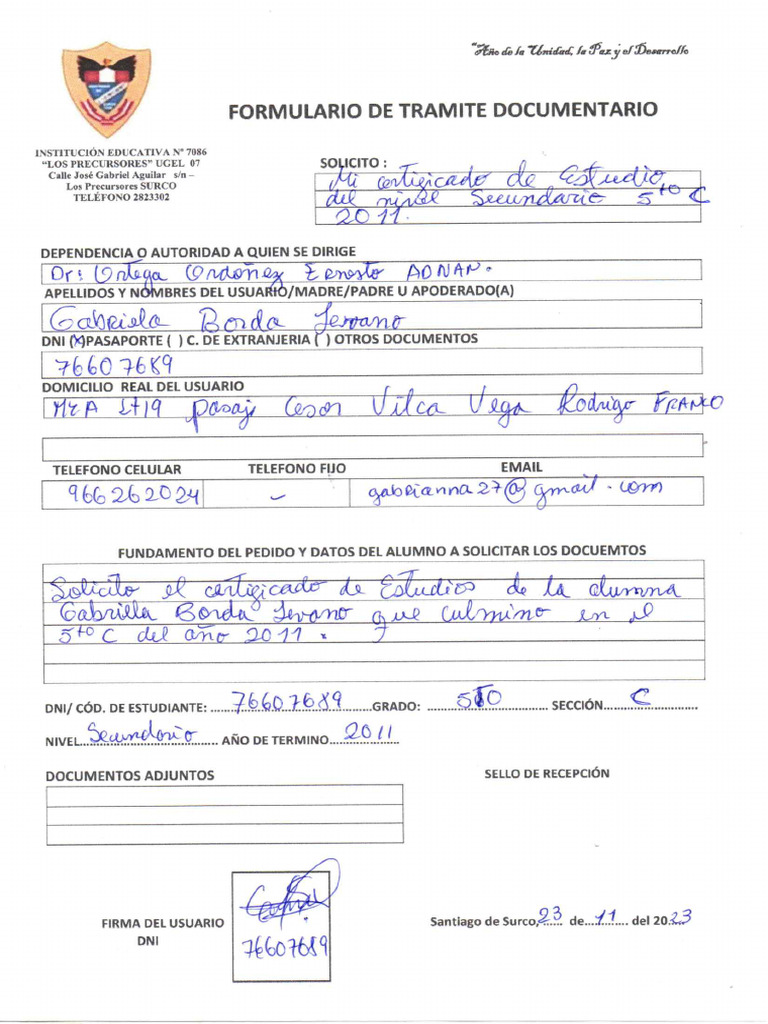 "Año de la Unidad, la Paz y el Desarrollo
FORMULARIO DE TRAMITE DOCUMENTARIO
INSTITUCIÓN EDUCATIVA Nº 7086
"LOS PRECURSORES" UGEL 07
Calle José Gabriel Aguilar s/n –
Los Precursores SURCO
TELÉFONO 2823302
SOLICITO :
Mi certificado de Estudio
del nivel Secundario 5to C
2011.
DEPENDENCIA O AUTORIDAD A QUIEN SE DIRIGE
Dr: Ortega Ordoñez Ernesto ADNAN.
APELLIDOS Y NOMBRES DEL USUARIO/MADRE/PADRE U APODERADO(A)
Gabriela Borda Levano
DNI (X)PASAPORTE ( ) C. DE EXTRANJERIA ( ) OTROS DOCUMENTOS
76607689
DOMICILIO REAL DEL USUARIO
MzA Lt19 pasaj Cesar Vilca Vega Rodrigo FRANCO
TELEFONO CELULAR TELEFONO FIJO EMAIL
966262024 – gabrianna27@gmail.com
FUNDAMENTO DEL PEDIDO Y DATOS DEL ALUMNO A SOLICITAR LOS DOCUEMTOS
Solicito el certificado de Estudios de la alumna
Gabriella Borda Levano que culmino en el
5to C del año 2011.
DNI/ CÓD. DE ESTUDIANTE: 76607689 GRADO: 5TO SECCIÓN C
NIVEL Secundario AÑO DE TERMINO 2011
DOCUMENTOS ADJUNTOS SELLO DE RECEPCIÓN
FIRMA DEL USUARIO
DNI
76607689
Santiago de Surco, 23 de 11 del 2023